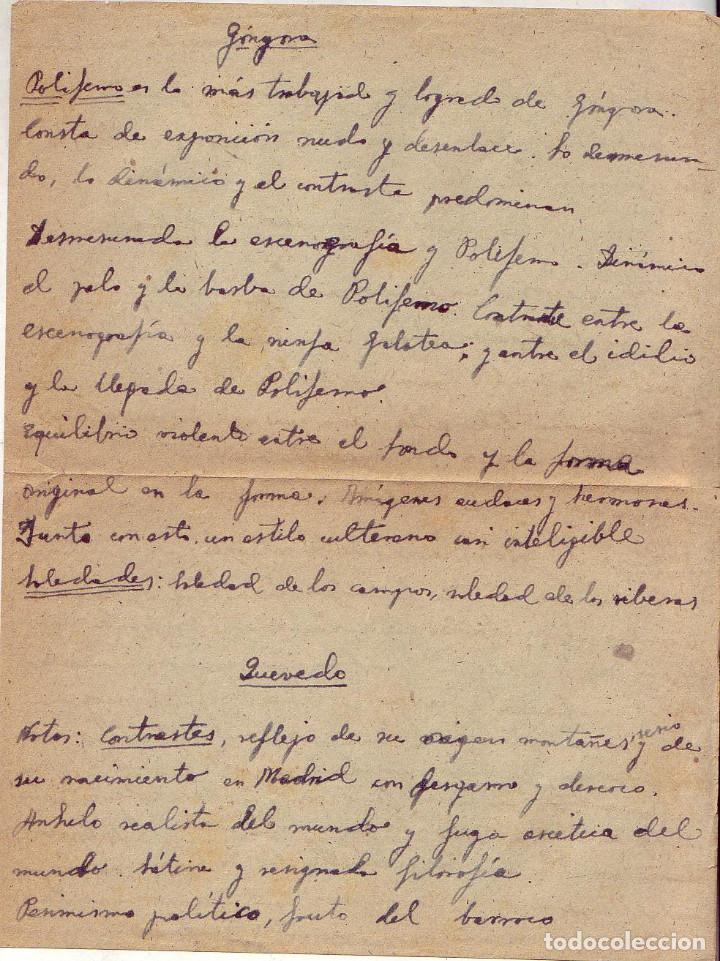 Góngora
Polifemo es lo más trabajad y logrado de Góngora.
Consta de exposición nudo y desenlace. Lo desmesura-
do, lo dinámico y el contraste predominan
Desmesurada la escenografía y Polifemo. Dinámico
el pelo y la barba de Polifemo. Contraste entre la
escenografía y la ninfa Galatea; y entre el idilio
y la llegada de Polifemo.
Equilibrio violento entre el fondo y la forma
original en la forma. Imágenes audaces y hermosas.
Junto con esto un estilo culterano casi inteligible
Soledades: soledad de los campos, soledad de las riberas
Quevedo
Notas: Contrastes, reflejo de su origen montañés, serio y de
su nacimiento en Madrid con desgarro y descoco.
Anhelo realista del mundo y fuga ascética del
mundo. Sátira y resignada filosofía
Pesimismo político, fruto del barroco
todocoleccion